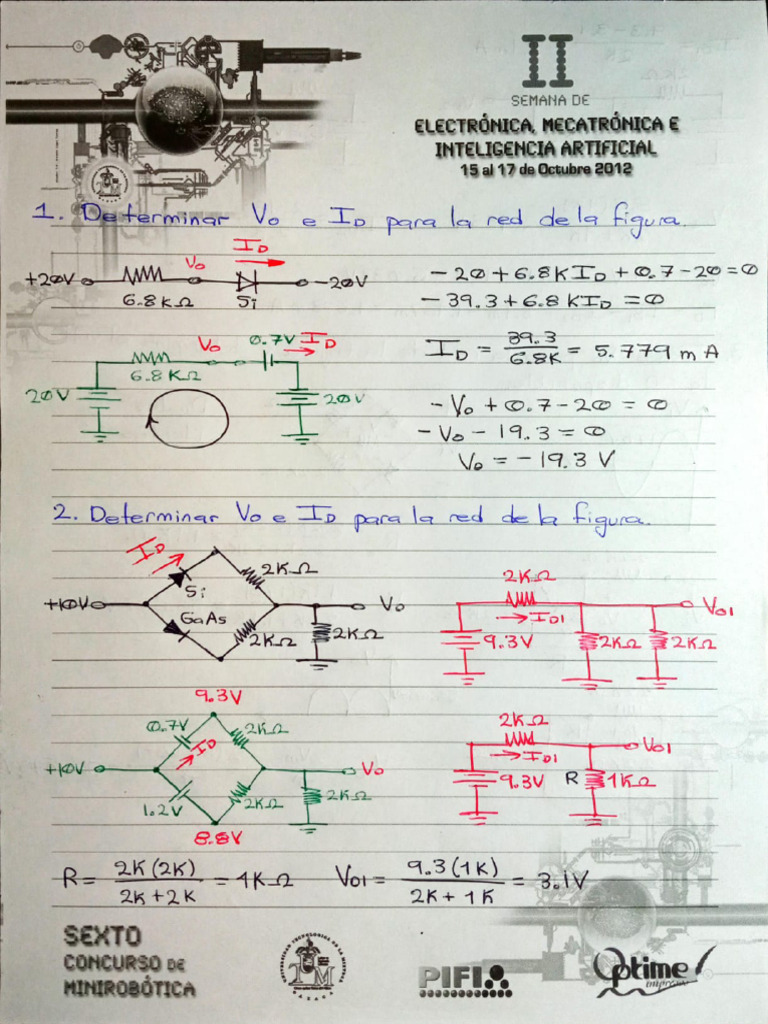 II
SEMANA DE
ELECTRÓNICA, MECATRÓNICA E
INTELIGENCIA ARTIFICIAL
15 al 17 de Octubre 2012
1. Determinar Vo e ID para la red de la figura.
ID
Vo
+20V
6.8KΩ
Si
-20V
-20 + 6.8KID + 0.7 - 20 = 0
-39.3 + 6.8KID = 0
ID = 39.3/6.8K = 5.779 mA
Vo
0.7V
ID
6.8KΩ
20V
20V
-Vo + 0.7 - 20 = 0
-Vo - 19.3 = 0
Vo = -19.3 V
2. Determinar Vo e ID para la red de la figura.
ID
2KΩ
Si
+10V
GaAs
2KΩ
2KΩ
Vo
2KΩ
ID1
9.3V
2KΩ
2KΩ
Vo1
9.3V
0.7V
2KΩ
ID
+10V
Vo
1.2V
2KΩ
2KΩ
8.8V
2KΩ
Vo1
ID1
9.3V
R
1KΩ
R = 2K(2K)/2K+2K = 1KΩ Vo1 = 9.3(1K)/2K+1K = 3.1V
SEXTO
CONCURSO DE
MINIROBÓTICA
PIFI
Optime
impresos